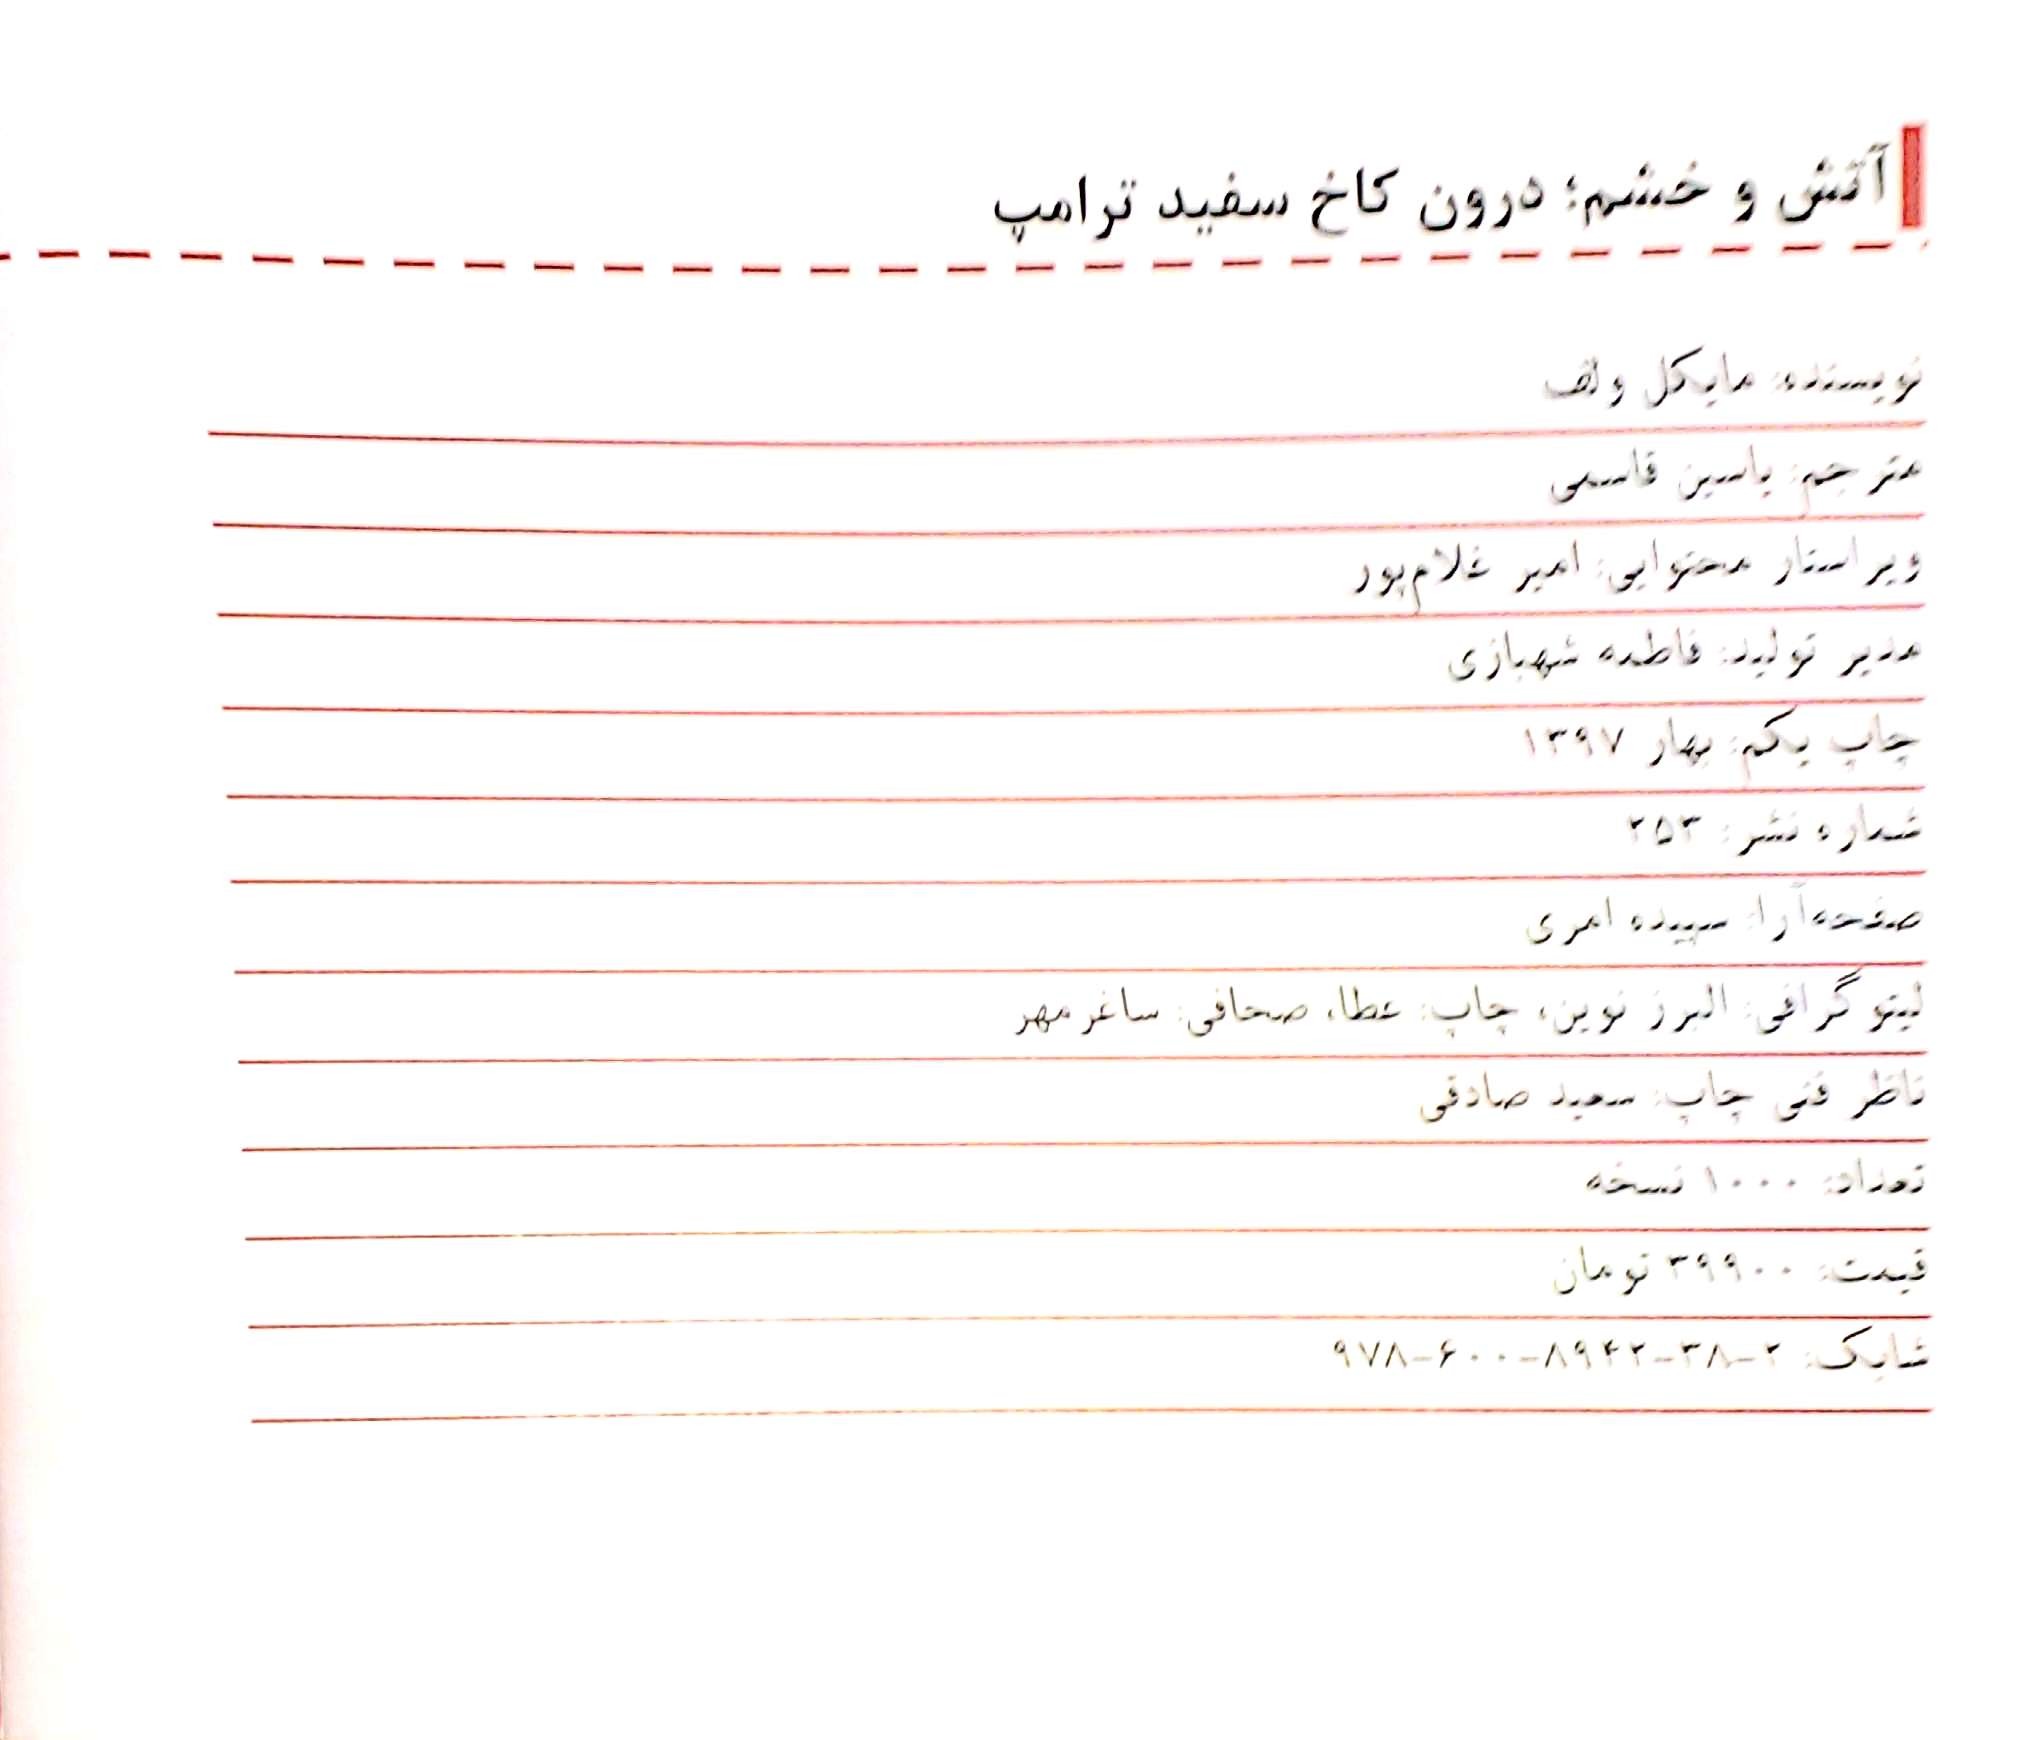 آتش و خشم؛ درون کاخ سفید ترامپ
نویسنده: مایکل ولف
مترجم: یاسین قاسمی
ویراستار محتوایی: امیر غلام‌پور
مدیر تولید: فاطمه شهبازی
چاپ یکم: بهار ۱۳۹۷
شماره نشر: ۲۵۳
صفحه‌آرا: سپیده امری
لیتوگرافی: البرز نوین، چاپ: عطا، صحافی: ساغرمهر
ناظر فنی چاپ: سعید صادقی
تعداد: ۱۰۰۰ نسخه
قیمت: ۳۹۹۰۰ تومان
شابک: ۲-۳۸-۸۹۴۲-۶۰۰-۹۷۸